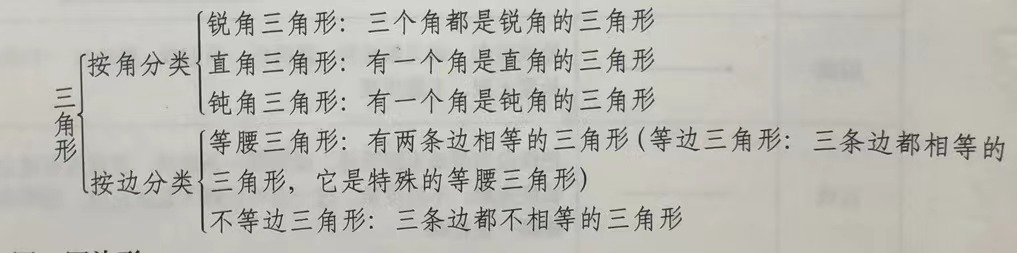 锐角三角形：三个角都是锐角的三角形
按角分类
直角三角形：有一个角是直角的三角形
钝角三角形：有一个角是钝角的三角形
三角形
等腰三角形：有两条边相等的三角形(等边三角形：三条边都相等的
按边分类
三角形，它是特殊的等腰三角形)
不等边三角形：三条边都不相等的三角形